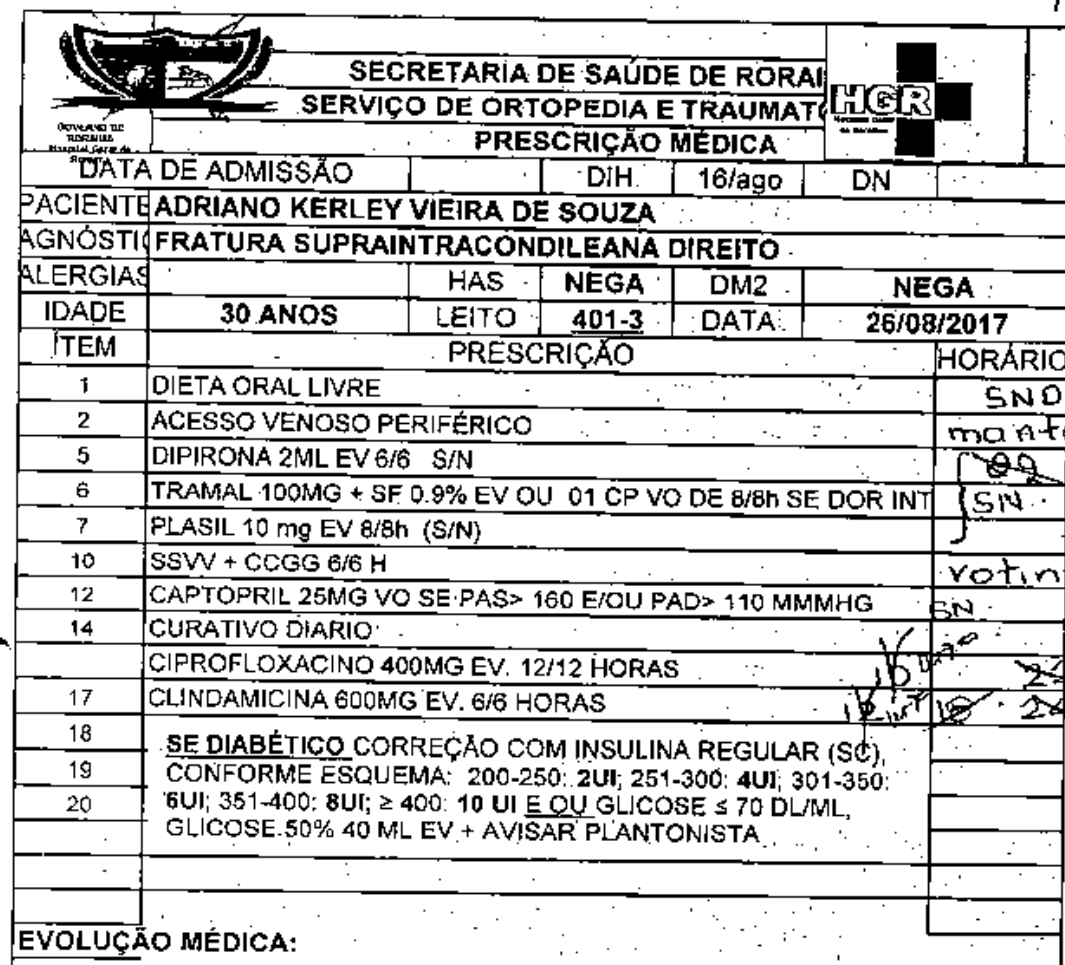 SECRETARIA DE SAÚDE DE RORAI
SERVIÇO DE ORTOPEDIA E TRAUMAT
PRESCRIÇÃO MÉDICA
HGR
DATA DE ADMISSÃO DIH 16/ago DN
PACIENTE ADRIANO KERLEY VIEIRA DE SOUZA
AGNÓSTI FRATURA SUPRAINTRACONDILEANA DIREITO
ALERGIAS HAS NEGA DM2 NEGA
IDADE 30 ANOS LEITO 401-3 DATA: 26/08/2017
ÍTEM PRESCRIÇÃO HORÁRIO
1 DIETA ORAL LIVRE SND
2 ACESSO VENOSO PERIFÉRICO
5 DIPIRONA 2ML EV 6/6 S/N
6 TRAMAL 100MG + SF 0.9% EV OU 01 CP VO DE 8/8h SE DOR INT SN
7 PLASIL 10 mg EV 8/8h (S/N)
10 SSVV + CCGG 6/6 H
12 CAPTOPRIL 25MG VO SE PAS> 160 E/OU PAD> 110 MMMHG SN
14 CURATIVO DIARIO
CIPROFLOXACINO 400MG EV. 12/12 HORAS
17 CLINDAMICINA 600MG EV. 6/6 HORAS
18 SE DIABÉTICO CORREÇÃO COM INSULINA REGULAR (SC),
19 CONFORME ESQUEMA: 200-250: 2UI; 251-300: 4UI; 301-350:
20 6UI; 351-400: 8UI; ≥ 400: 10 UI E OU GLICOSE ≤ 70 DL/ML,
GLICOSE 50% 40 ML EV + AVISAR PLANTONISTA
EVOLUÇÃO MÉDICA: